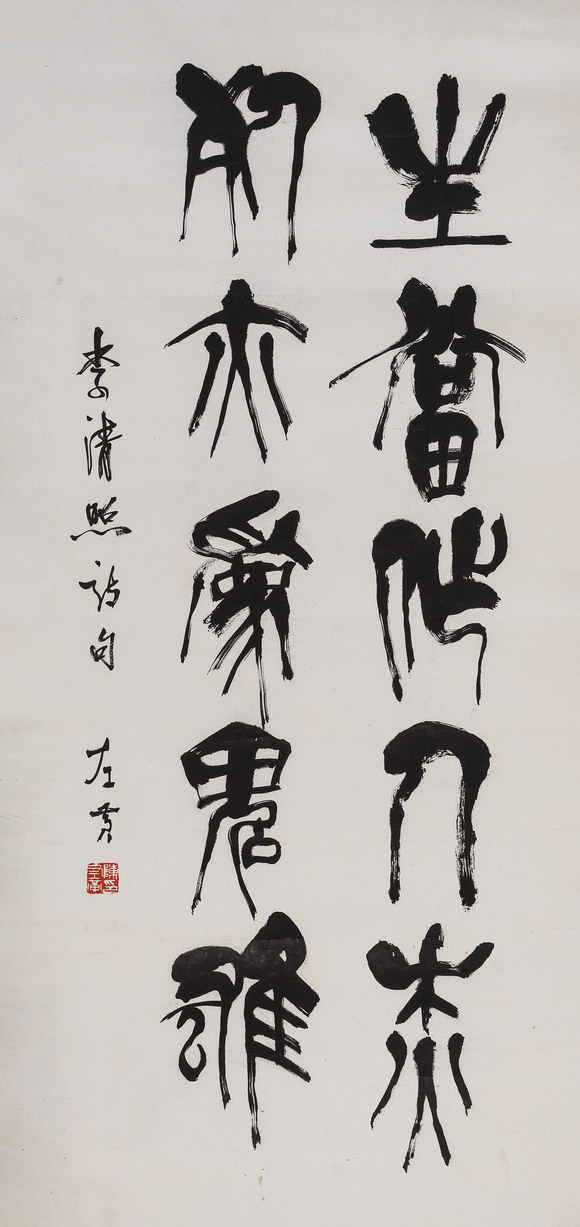 生當作人杰
死亦爲鬼雄
李清照詩句 左黄